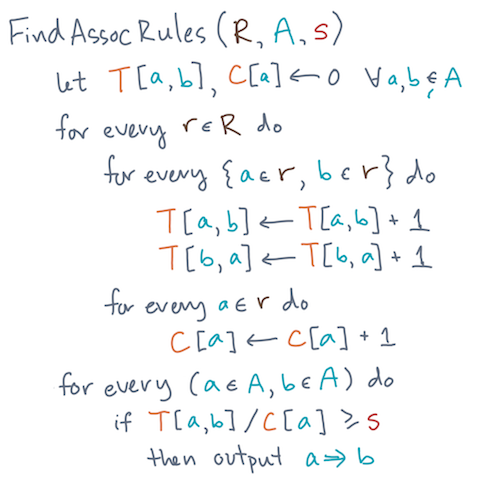 FindAssocRules (R, A, s)
let T[a,b], C[a] ← 0 ∀a,b ∈ A
for every r ∈ R do
for every {a ∈ r, b ∈ r} do
T[a,b] ← T[a,b] + 1
T[b,a] ← T[b,a] + 1
for every a ∈ r do
C[a] ← C[a] + 1
for every (a ∈ A, b ∈ A) do
if T[a,b] / C[a] ⩾ s
then output a ⇒ b